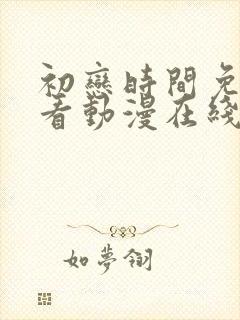 初戀時間免
看動漫在綫
如夢翎